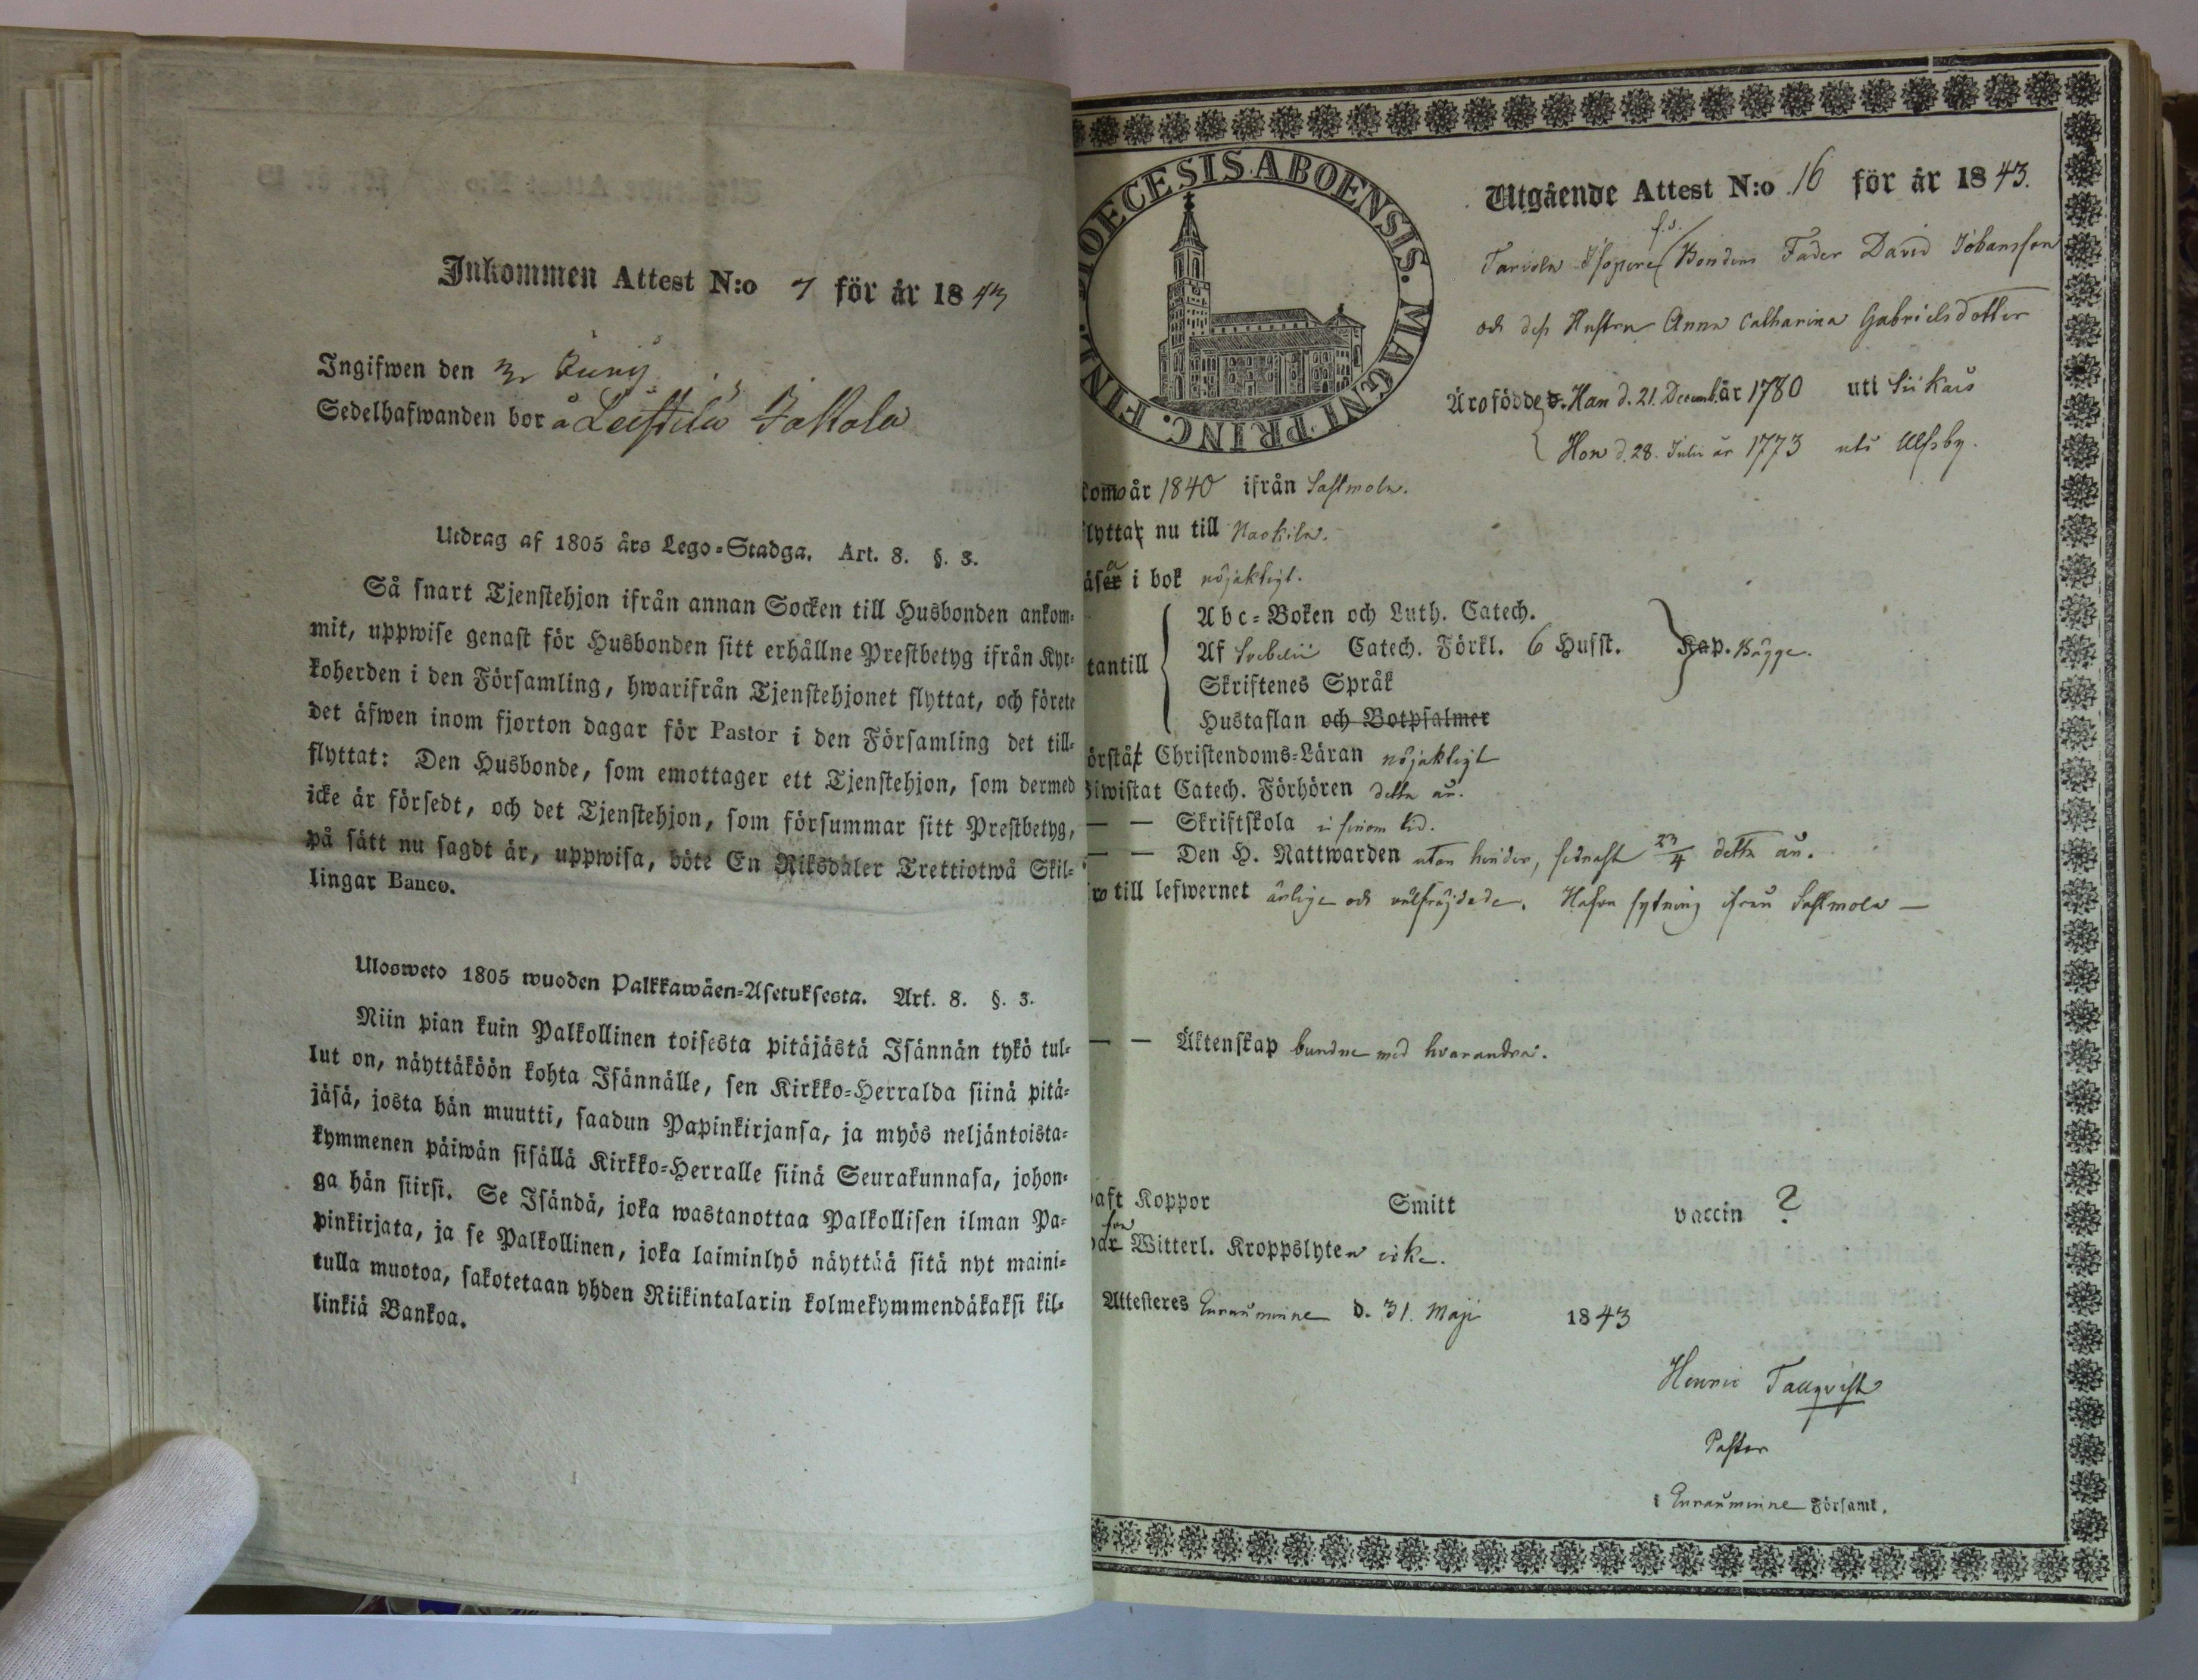 Inkommen Attest N:o 7 för år 1843
Ingifwen den 3 Junij
Sedelhafwanden bor å Leistilä Jakola
Utdrag af 1805 års Lego-Stadga. Art. 8. §. 3.
Så snart Tjenstehjon ifrån annan Socken till Husbonden ankom-
mit, uppwise genast för Husbonden sitt erhållne Prestbetyg ifrån Kyr-
koherden i den Församling, hwarifrån Tjenstehjonet flyttat, och förete
det äfwen inom fjorton dagar för Pastor i den Församling det till-
flyttat: Den Husbonde, som emottager ett Tjenstehjon, som dermed
icke är försedt, och det Tjenstehjon, som försummar sitt Prestbetyg,
på sätt nu sagdt är, uppwisa, böte En Riksdaler Trettiotwå Skil-
lingar Banco.
Ulosweto 1805 wuoden Palkkawäen-Asetuksesta. Art. 8. §. 3.
Niin pian kuin Palkollinen toisesta pitäjästä Isännän tykö tul-
lut on, näyttäköön kohta Isännälle, sen Kirkko-Herralda siinä pitä-
jäsä, josta hän muutti, saadun Papinkirjansa, ja myös neljäntoista-
kymmenen päiwän sisällä Kirkko-Herralle siinä Seurakunnasa, johon-
ga hän siirsi. Se Isändä, joka wastanottaa Palkollisen ilman Pa-
pinkirjata, ja se Palkollinen, joka laiminlyö näyttää sitä nyt maini-
tulla muotoa, sakotetaan yhden Riikintalarin kolmekymmendäkaksi kil-
linkiä Bankoa.
DIOECESIS ABOENSIS. MAGNI PRINC. FINL.
Utgående Attest N:o 16 för år 1843.
f.d. Bondens Fader David Johansson
och dess Hustru Anna Catharina Gabrielsdotter
Äro födde Han d. 21. Decemb. år 1780 uti Siikais
Hon d. 28. Julii år 1773 uti Ulfsby.
kom år 1840 ifrån Sastmola.
flyttar nu till Nackila.
äsa i bok nöjaktigt.
Abc-Boken och Luth. Catech.
tantill Af Svebelii Catech. Förkl. 6 Husst. Kap. Bägge.
Skriftenes Språk
Hustaflan och Botpsalmer
örstår Christendoms-Läran nöjaktigt
Biwistat Catech. Förhören detta år.
— — Skriftskola i sinom tid.
— — Den H. Nattwarden utan hinder, sednast 23/4 detta år.
ro till lefwernet ärlige och välfräjdade. Hafva sytning ifrån Sastmola —
— — Äktenskap bundne med hvarandra.
aft Koppor Smitt vaccin ?
Witterl. Kroppslyten icke.
Attesteres Euraåminne d. 31. Maji 1843
Henric Tallqvist
Pastor
i Euraåminne Församl.